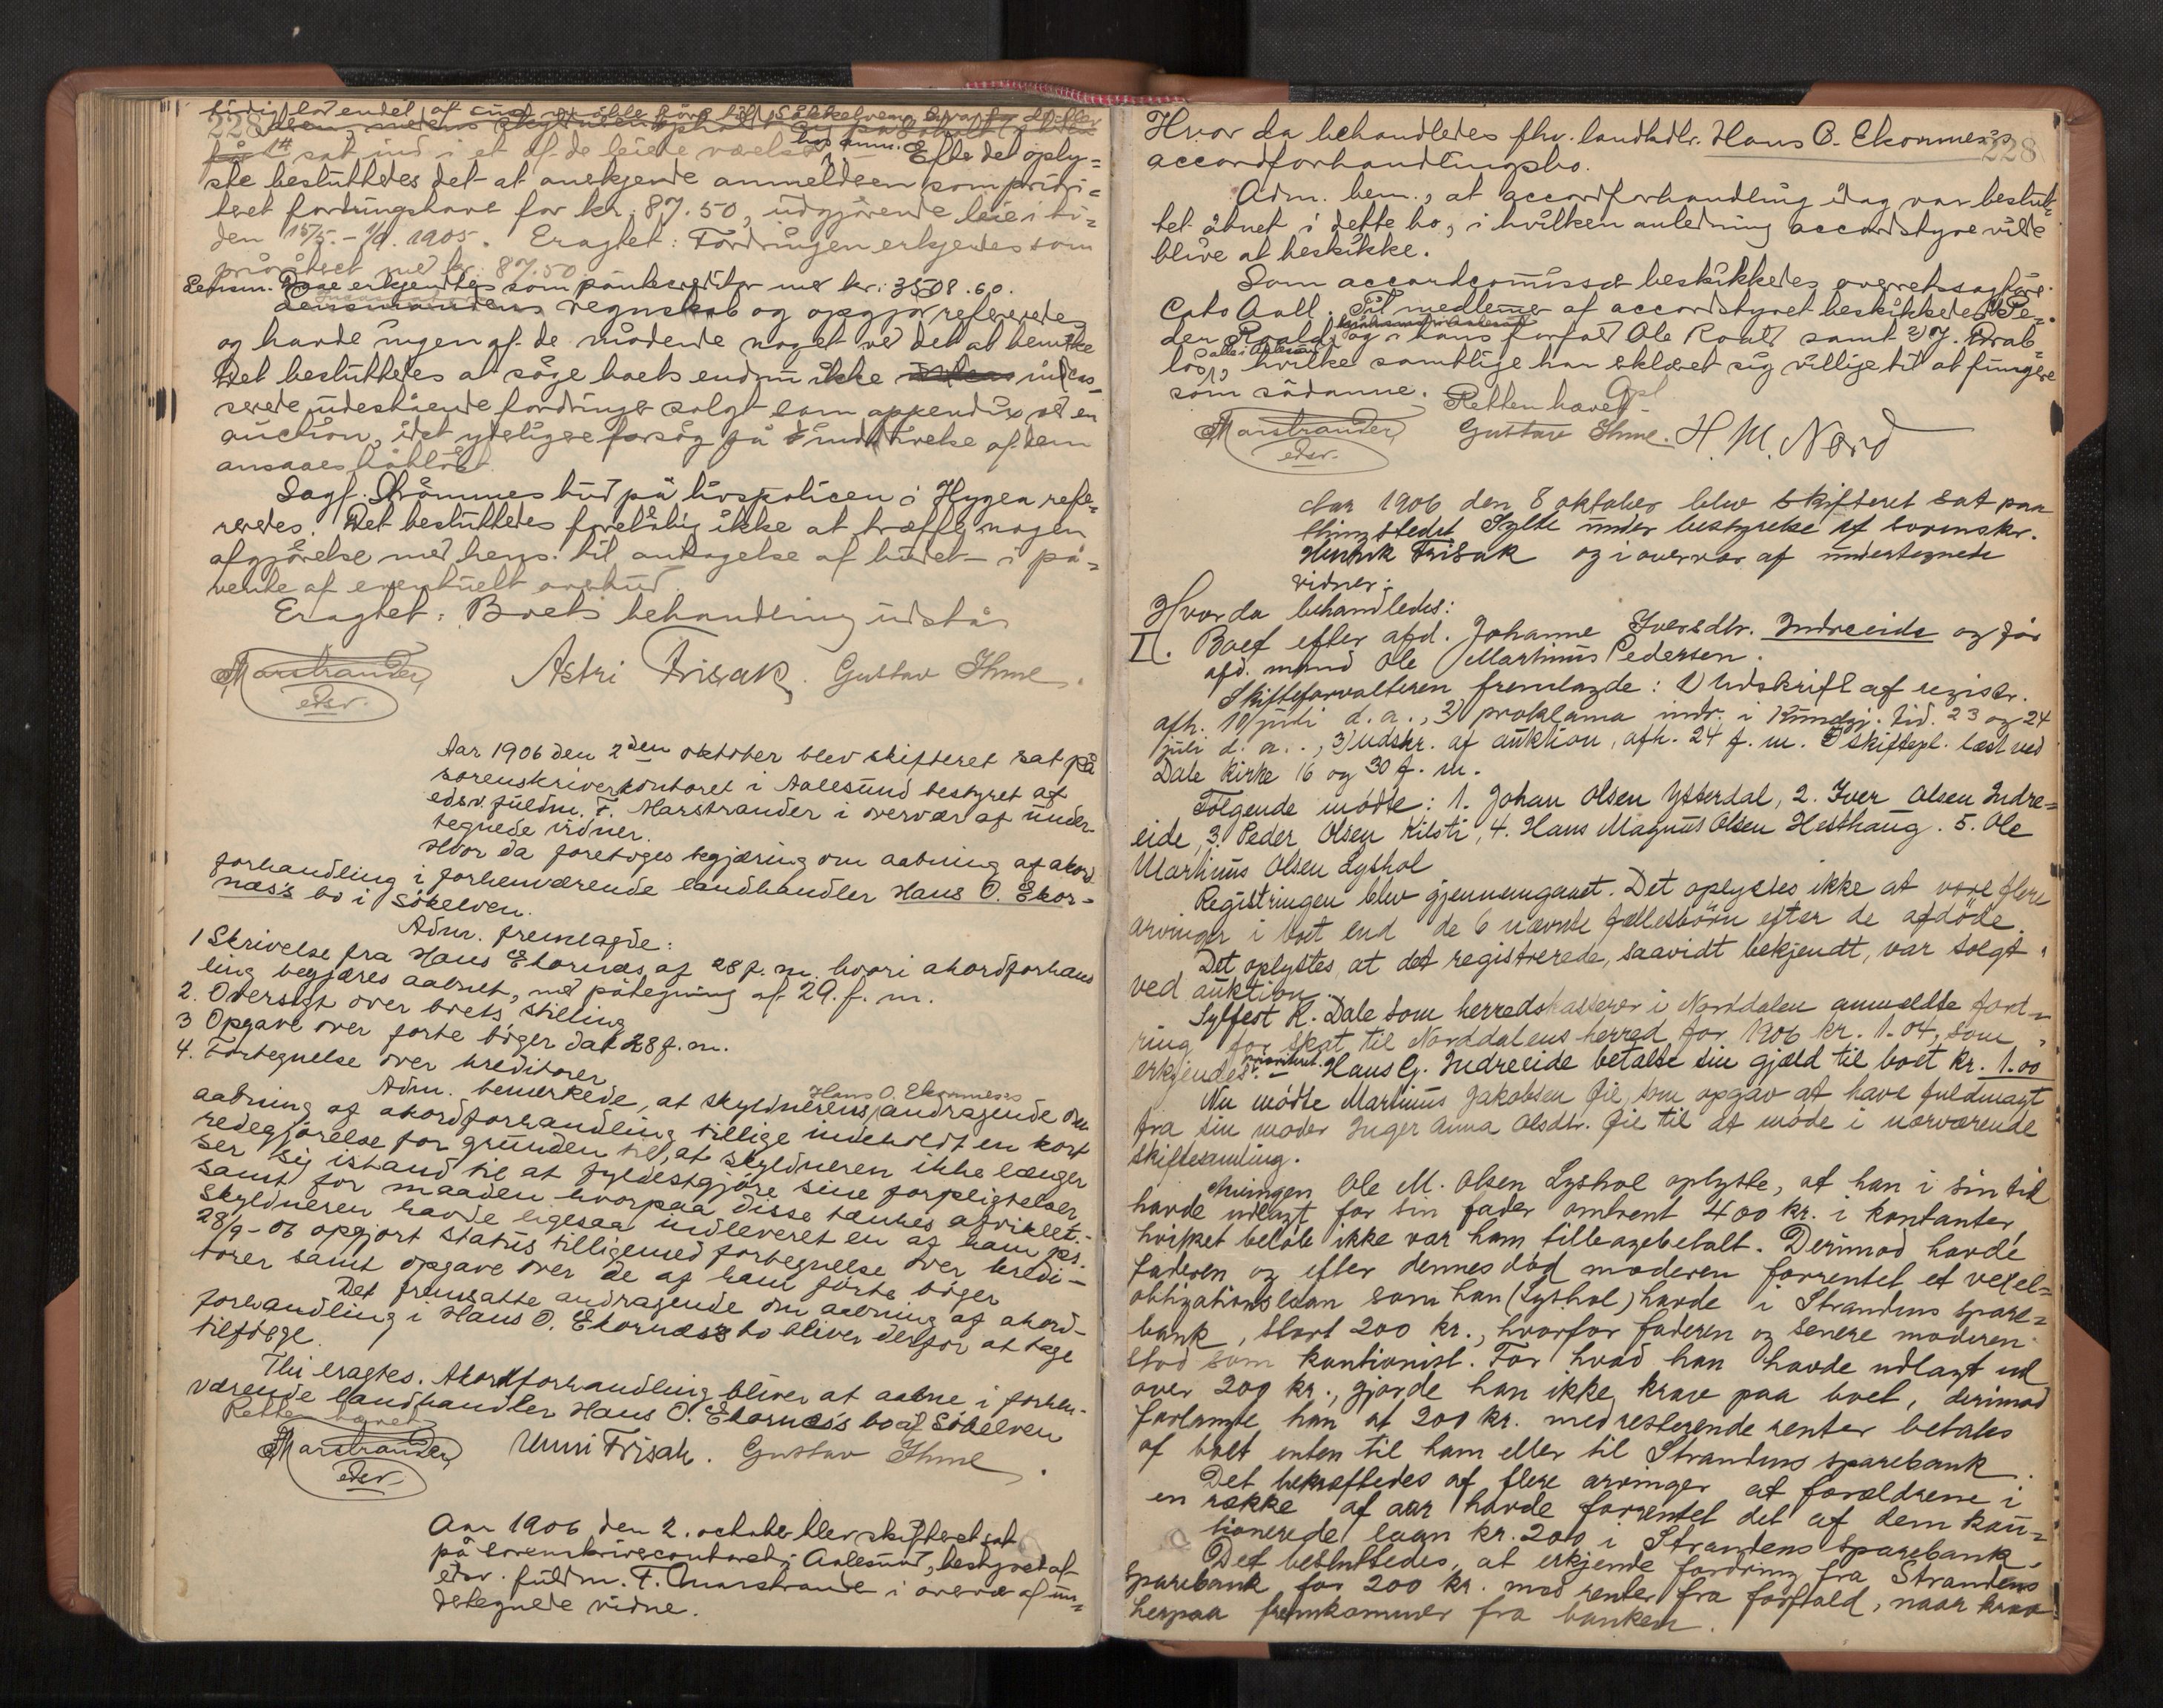 228
sat ind i et af de leiede værelser hos anm. Efter det oply=
ste besluttedes det at anerkjende anmelderen som priori=
teret fordringshaver for kr. 87.50, udgjørende leie i ti=
den 15/5. - 1/9. 1905. Eragtet: Fordringen erkjendes som
prioritert med kr. 87.50.
Lensm. erkjendtes som pantecreditor med kr. 3508.60.
Lensmandens regnskab og opgjør refereredes
og havde ingen af de mødende noget ved det at bemærke
Det besluttedes at søge boets endnu ikke indcas=
serede udestående fordringer solgt som appendix ved en
auction, idet yderligere forsøg på inddrivelse af dem
ansaaes håbløst.
Sagf. Strømmes bud på livspolicen i Hygea refe=
reredes. Det besluttedes foreløbig ikke at træffe nogen
afgjørelse med hens. til antagelse af budet i på=
vente af eventuelt overbud.
Eragtet: Boets behandling udstår
Marstrander Astri Frisak. Gustav Ihme.
edsv.
Aar 1906 den 2den oktober blev skifteret sat på
sorenskriverkontoret i Aalesund bestyret af
edsv. fuldm. F. Marstrander i overvær af under-
tegnede vidner.
Hvor da foretoges begjæring om aabning af akord
forhandling i forhenværende landhandler Hans O. Ekor-
næs's bo i Søkelven.
Adm. fremlagde:
1 Skrivelse fra Hans Ekornæs af 28 f. m. hvori akordforhand
ling begjæres aabnet, med påtegning af 29. f. m.
2. Oversigt over boets stilling
3 Opgave over førte bøger dat 28 f. m.
4. Fortegnelse over kreditorer
Adm. bemærkede, at skyldnerens Hans O. Ekornæses andragende om
aabning af akordforhandling tillige indeholdt en kort
redegjørelse for grunden til, at skyldneren ikke længer
ser sig istand til at fyldestgjøre sine forpligtelser
samt for maaden hvorpaa disse tænkes afviklet.-
Skyldneren havde ligesaa indleveret en af ham pr.
28/9-06 opgjort status tilligemed fortegnelse over kredi-
torer samt opgave over de af ham førte bøger
Det fremsatte andragende om aabning af akord-
forhandling i Hans O. Ekornæs's bo bliver derfor at tage
tilfølge.
Thi eragtes. Akordforhandling bliver at aabne i forhen-
værende landhandler Hans O. Ekornæs's bo af Søkelven
Retten hævet
Marstrander Unni Frisak. Gustav Ihme.
edsv.
Aar 1906 den 2. october blev skifteret sat
på sorenskrivercontoret i Aalesund, bestyret af
edsv. fuldm. F. Marstrander i overvær af un=
dertegnede vidner.
228
Hvor da behandledes fhv. landhdlr. Hans O. Ekornnes's
accordforhandlingsbo.
Adm. bem., at accordforhandling idag var beslut=
tet åbnet i dette bo, i hvilken anledning accordstyre vilde
blive at beskikke.
Som accordcommissær beskikkedes overretssagfører
Cato Aall. Til medlemmer af accordstyret beskikkedes 1) Pe=
der Roald og i hans forfald Ole Roald samt 2) J. Drab=
løs, alle i Aalesund, hvilke samtlige har erklæret sig villige til at fungere
som sådanne. Retten hævet
Marstrander Gustav Ihme. H. M. Nord
edsv.
Aar 1906 den 8 oktober blev skifteret sat paa
thingstedet Sylte under bestyrelse af sorenskr.
Henrik Frisak og i overvær af undertegnede
vidner:
Hvor da behandledes:
I. Boet efter afd. Johanne Iversdtr. Indreeide og før
afd. mand Ole Martinus Pedersen.
Skifteforvalteren fremlagde: 1) Udskrift af registr.
afh. 10 juli d. a., 2) proklama indr. i Kundgj. tid. 23 og 24
juli d. a., 3) udskr. af auktion, afh. 24 f. m. skiftepl. læst ved
Dale kirke 16 og 30 f. m.
Følgende mødte: 1. Johan Olsen Ytterdal, 2. Iver Olsen Indre=
eide, 3. Peder Olsen Kilsti, 4. Hans Magnus Olsen Hesthaug. 5. Ole
Martinus Olsen Lyshol
Registringen blev gjennemgaaet. Det oplystes ikke at være flere
arvinger i boet end de 6 nævnte fællesbörn efter de afdöde.
Det oplystes at det registrerede, saavidt bekjendt, var solgt
ved auktion.
Sylfest K. Dale som herredskasserer i Norddalen anmeldte ford=
ring for skat til Norddalens herred for 1906 kr. 1.04, som
erkjendes prioriteret. - Hans G. Indreeide betalte sin gjæld til boet kr. 1.00
Nu mødte Martinus Jakobsen Øie, som opgav at have fuldmagt
fra sin moder Inger Anna Olsdtr. Øie til at møde i nærværende
skiftesamling.
Arvingen Ole M. Olsen Lyshol oplyste, at han i sin tid
havde udlagt for sin fader omtrent 400 kr. i kontanter,
hvilket beløb ikke var ham tilbagebetalt. Derimod havde
faderen og efter dennes død moderen forrentet et vexel=
obligationslaan som han (Lyshol) havde i Strandens spare=
bank, stort 200 kr., hvorfor faderen og senere moderen
stod som kautionist. For hvad han havde udlagt ud
over 200 kr., gjorde han ikke krav paa boet, derimod
forlangte han at 200 kr. med resterende renter betales
af boet enten til ham eller til Strandens sparebank.
Det bekræftedes af flere arvinger at forældrene i
en række af aar havde forrentet det af dem kau=
tionerede laan kr. 200 i Strandens sparebank.
Det besluttedes, at erkjende fordring fra Strandens
Sparebank for 200 kr. med renter fra forfald, naar krav
herpaa fremkommer fra banken.